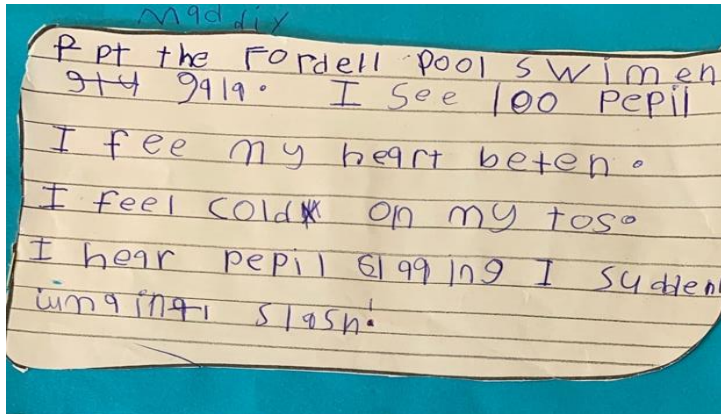 maddiy
ppt the Fordell pool swimen
gala. I see 100 pepil
I fee my heart beten.
I feel cold on my tos.
I hear pepil I sudden
slash!